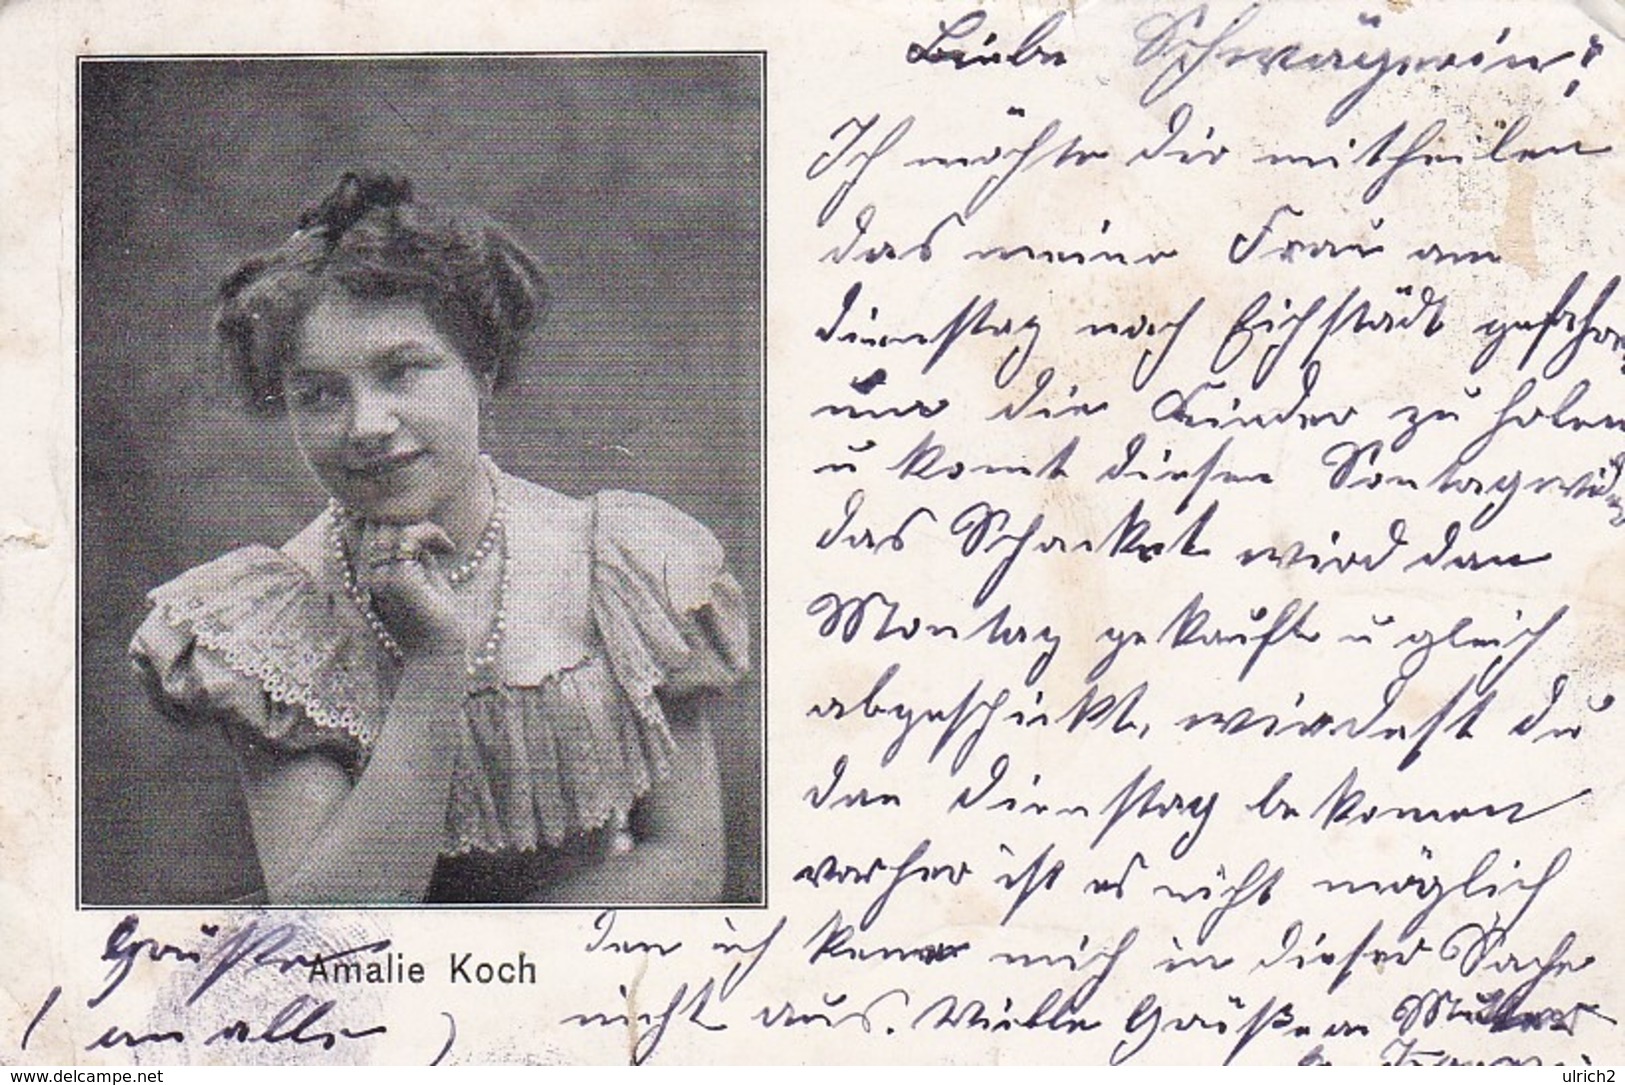 Liebe Schwägerin!
Ich möchte dir mittheilen
das meine Frau am
dienstag nach Eichstädt gefahren
um die Kinder zu holen
u komt diesen Sontag wider
das Schacket wird dan
Montag gekauft u gleich
abgeschickt, wirdest du
dan Dienstag bekomen
vorher ist es nicht möglich
den ich kene mich in dieser Sache
nicht aus. Vielle Grüße an Mutter
Grüße
(an alle)
Amalie Koch
www.delcampe.net
ulrich2